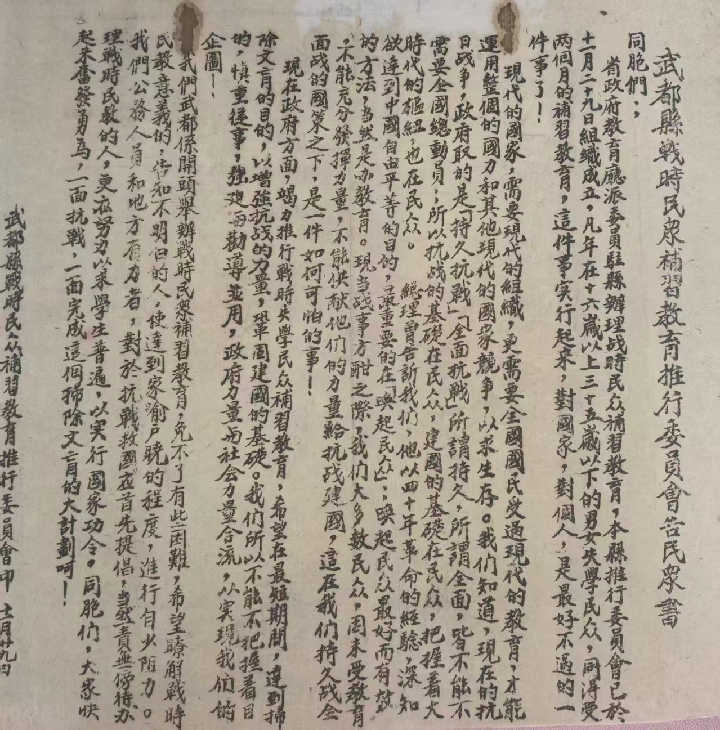 武都縣戰時民衆補習教育推行委員會告民衆書
同胞們：
省政府教育廳派委員駐縣辦理战時民众補習教育，本縣推行委員會已於
十一月二十九日組織成立，凡年在十六歲以上三十五歲以下的男女失學民众，同得受
兩個月的補習教育，這件事實行起來，對國家，對個人，是最好不過的一
件事了！
現代的國家，需要現代的組織，更需要全國國民受過現代的教育，才能
運用整個的國力和其他現代的國家競爭，以求生存。我們知道，現在的抗
日战争，政府取的是「持久抗戰」「全面抗戰」所謂持久，所謂全面，皆不能不
需要全國總動員，所以抗战的基礎在民众，建國的基礎在民众，把握着大
時代的樞紐，也在民众。 總理曾告訴我們，他以四十年革命的经驗，深知
欲達到中國自由平等的目的，最重要的在「喚起民众」；喚起民众最好而有效
的方法，當然是 教育。現當战事方酣之際，我們大多数民众，因未受教育
，不能充分發揮力量，不能供献他們的力量給抗战建國，這在我們持久战全
面战的國策之下，是一件如何可怕的事！
現在政府方面，竭力推行戰時失學民众補習教育，希望在最短期間，達到掃
除文盲的目的，以增強抗战的力量，鞏固建國的基礎。我們所以不能不把握着目
的，慎重徃事，強廹与勸導並用，政府力量与社会力量合流，以实現我們的
企圖！
我們武都係開頭舉辦戰時民衆補習教育，免不了有些困難，希望瞭解戰時
民教意義的，告知不明白的人，使達到家諭戶曉的程度，進行自少阻力。
我們公務人員和地方有力者，對於抗戰救國应首先提倡，当然責無傍待，办
理戰時民教的人，更应努力以求學生普遍，以实行國家功令。同胞們，大家快
起來奮發勇為，一面抗戰，一面完成這個掃除文盲的大計劃呵！
武都縣戰時民众補習教育推行委員會印 十一月廿九日